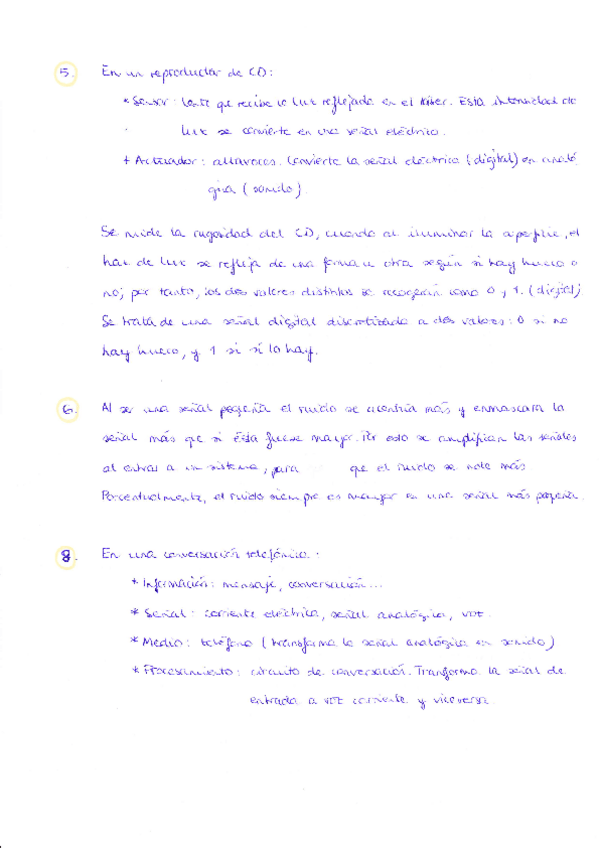 5. En un reproductor de CD:
* Sensor: lente que recibe la luz reflejada en el láser. Esta intensidad de
luz se convierte en una señal eléctrica.
* Actuador: altavoces. Convierte la señal eléctrica (digital) en analó
gica (sonido).
Se mide la rugosidad del CD, cuando al iluminar la superficie, el
haz de luz se refleja de una forma u otra según si hay hueco o
no; por tanto, los dos valores distintos se recogerán como 0 y 1. (digital)
Se trata de una señal digital discretizada a dos valores: 0 si no
hay hueco, y 1 si sí lo hay.
6. Al ser una señal pequeña el ruido se acentúa más y enmascara la
señal más que si ésta fuese mayor. Por eso se amplifican las señales
al entrar a un sistema, para que el ruido se note más
Porcentualmente, el ruido siempre es mayor en una señal más pequeña.
8. En una conversación telefónica:
* Información: mensaje, conversación...
* Señal: corriente eléctrica, señal analógica, voz.
* Medio: teléfono (transforma la señal analógica en sonido)
* Procesamiento: circuito de conversación. Transforma la señal de
entrada a voz corriente y viceversa.